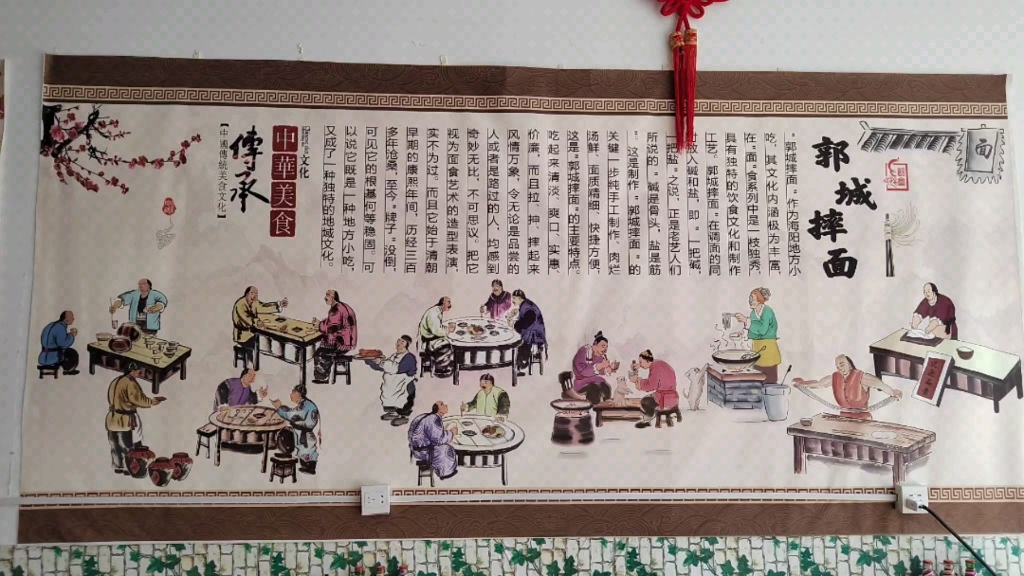 郭城摔面
面
“郭城摔面”作为海阳地方小
吃，其文化内涵极为丰富，
在“面”食系列中是一枝独秀，
具有独特的饮食文化和制作
工艺。郭城摔面”在调面的同
时放入碱和盐，即“一把碱，
一把盐”之说，正是老艺人们
所说的“碱是骨头，盐是筋
”。这是制作“郭城摔面”的
关键一步纯手工制作、肉烂
汤鲜、面质精细、快捷方便，
这是“郭城摔面”的主要特点。
吃起来清淡、爽口、实惠、
价廉，而且拉、抻、摔起来
风情万象，令无论是品尝的
人或者是路过的人，均感到
奇妙无比，不可思议。把它
视为面食艺术的造型表演，
实不为过。而且它始于清朝
早期的康熙年间，历经三百
多年沧桑，至今“牌子”没倒，
可见它的根基何等稳固。可
以说它既是一种地方小吃，
又成了一种独特的地域文化。
文化
中華美食
傳承
【中國傳統美食文化】